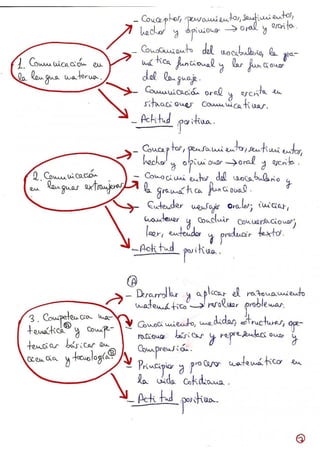 - Conceptos, pensamientos, sentimientos,
hechos y opiniones → oral y escrita.
- Conocimiento del vocabulario, la gra-
mática funcional y las funciones
del lenguaje.
- Comunicación oral y escrita en
situaciones comunicativas.
- Actitud positiva.
1. Comunicación en
la lengua materna.
- Conceptos, pensamientos, sentimientos,
hechos y opiniones → oral y escrita.
- Conocimientos del vocabulario y
la gramática funcional.
- Entender mensajes orales; iniciar,
mantener y concluir conversaciones;
leer, entender y producir textos.
- Actitud positiva.
2. Comunicación
en lenguas extranjeras
A
- Desarrollar y aplicar el razonamiento
matemático → resolver problemas.
- Conocimiento, medidas, estructuras, ope-
raciones básicas y representaciones y
comprensión.
- Principios y procesos matemáticos en
la vida cotidiana.
- Actitud positiva.
3. Competencia ma-
temática A y compe-
tencias básicas en
ciencia y tecnología B